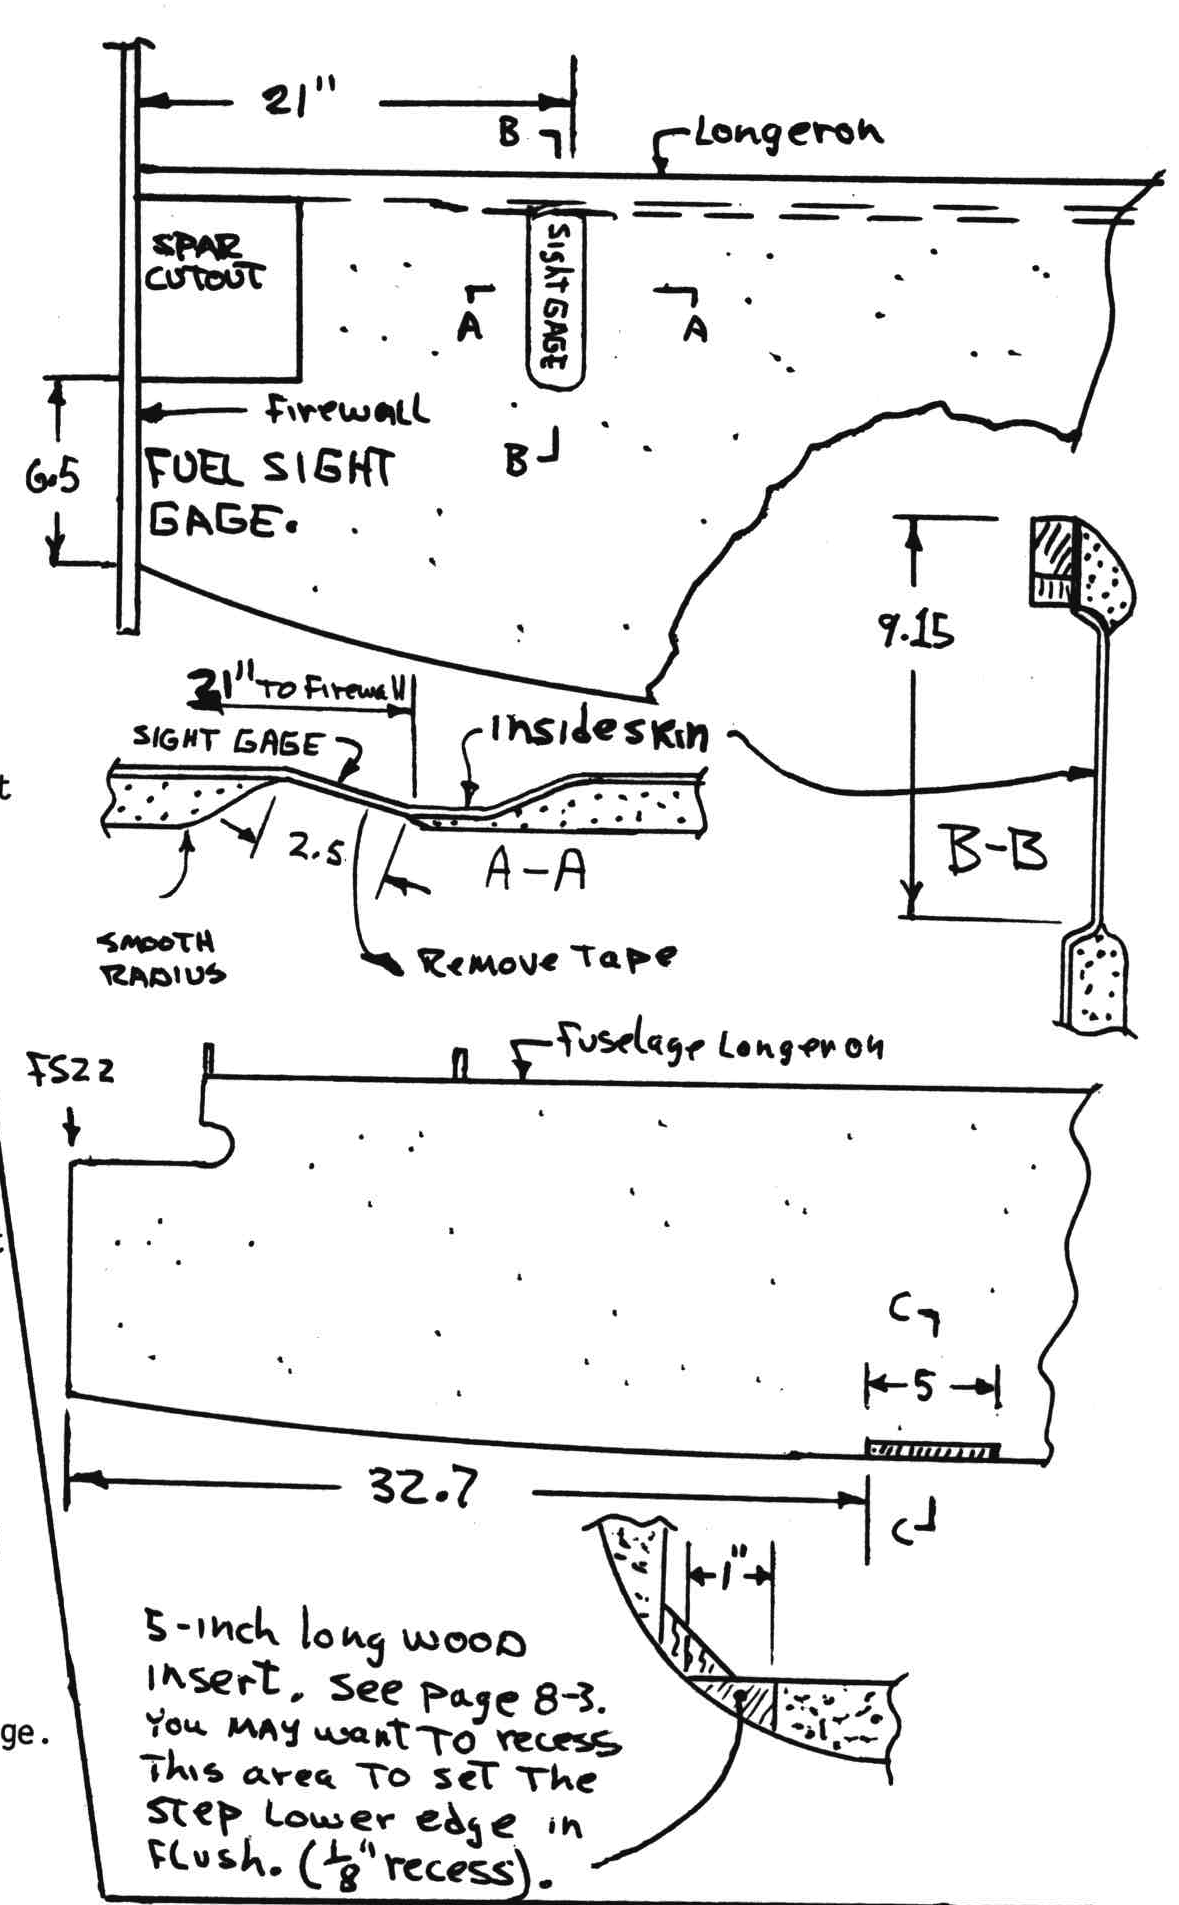 21"
B
Longeron
SPAR
CUTOUT
SIGHT GAGE
A
A
Firewall
6.5
FUEL SIGHT
GAGE.
B
9.15
21" TO Firewall
SIGHT GAGE
Inside skin
t
2.5
A-A
B-B
SMOOTH
RADIUS
Remove Tape
Fuselage Longeron
FS22
C
5
32.7
C
1"
5-inch long wood
insert. See page 8-3.
ge.
You MAY want TO recess
This area To set The
step Lower edge in
Flush. (1/8" recess).